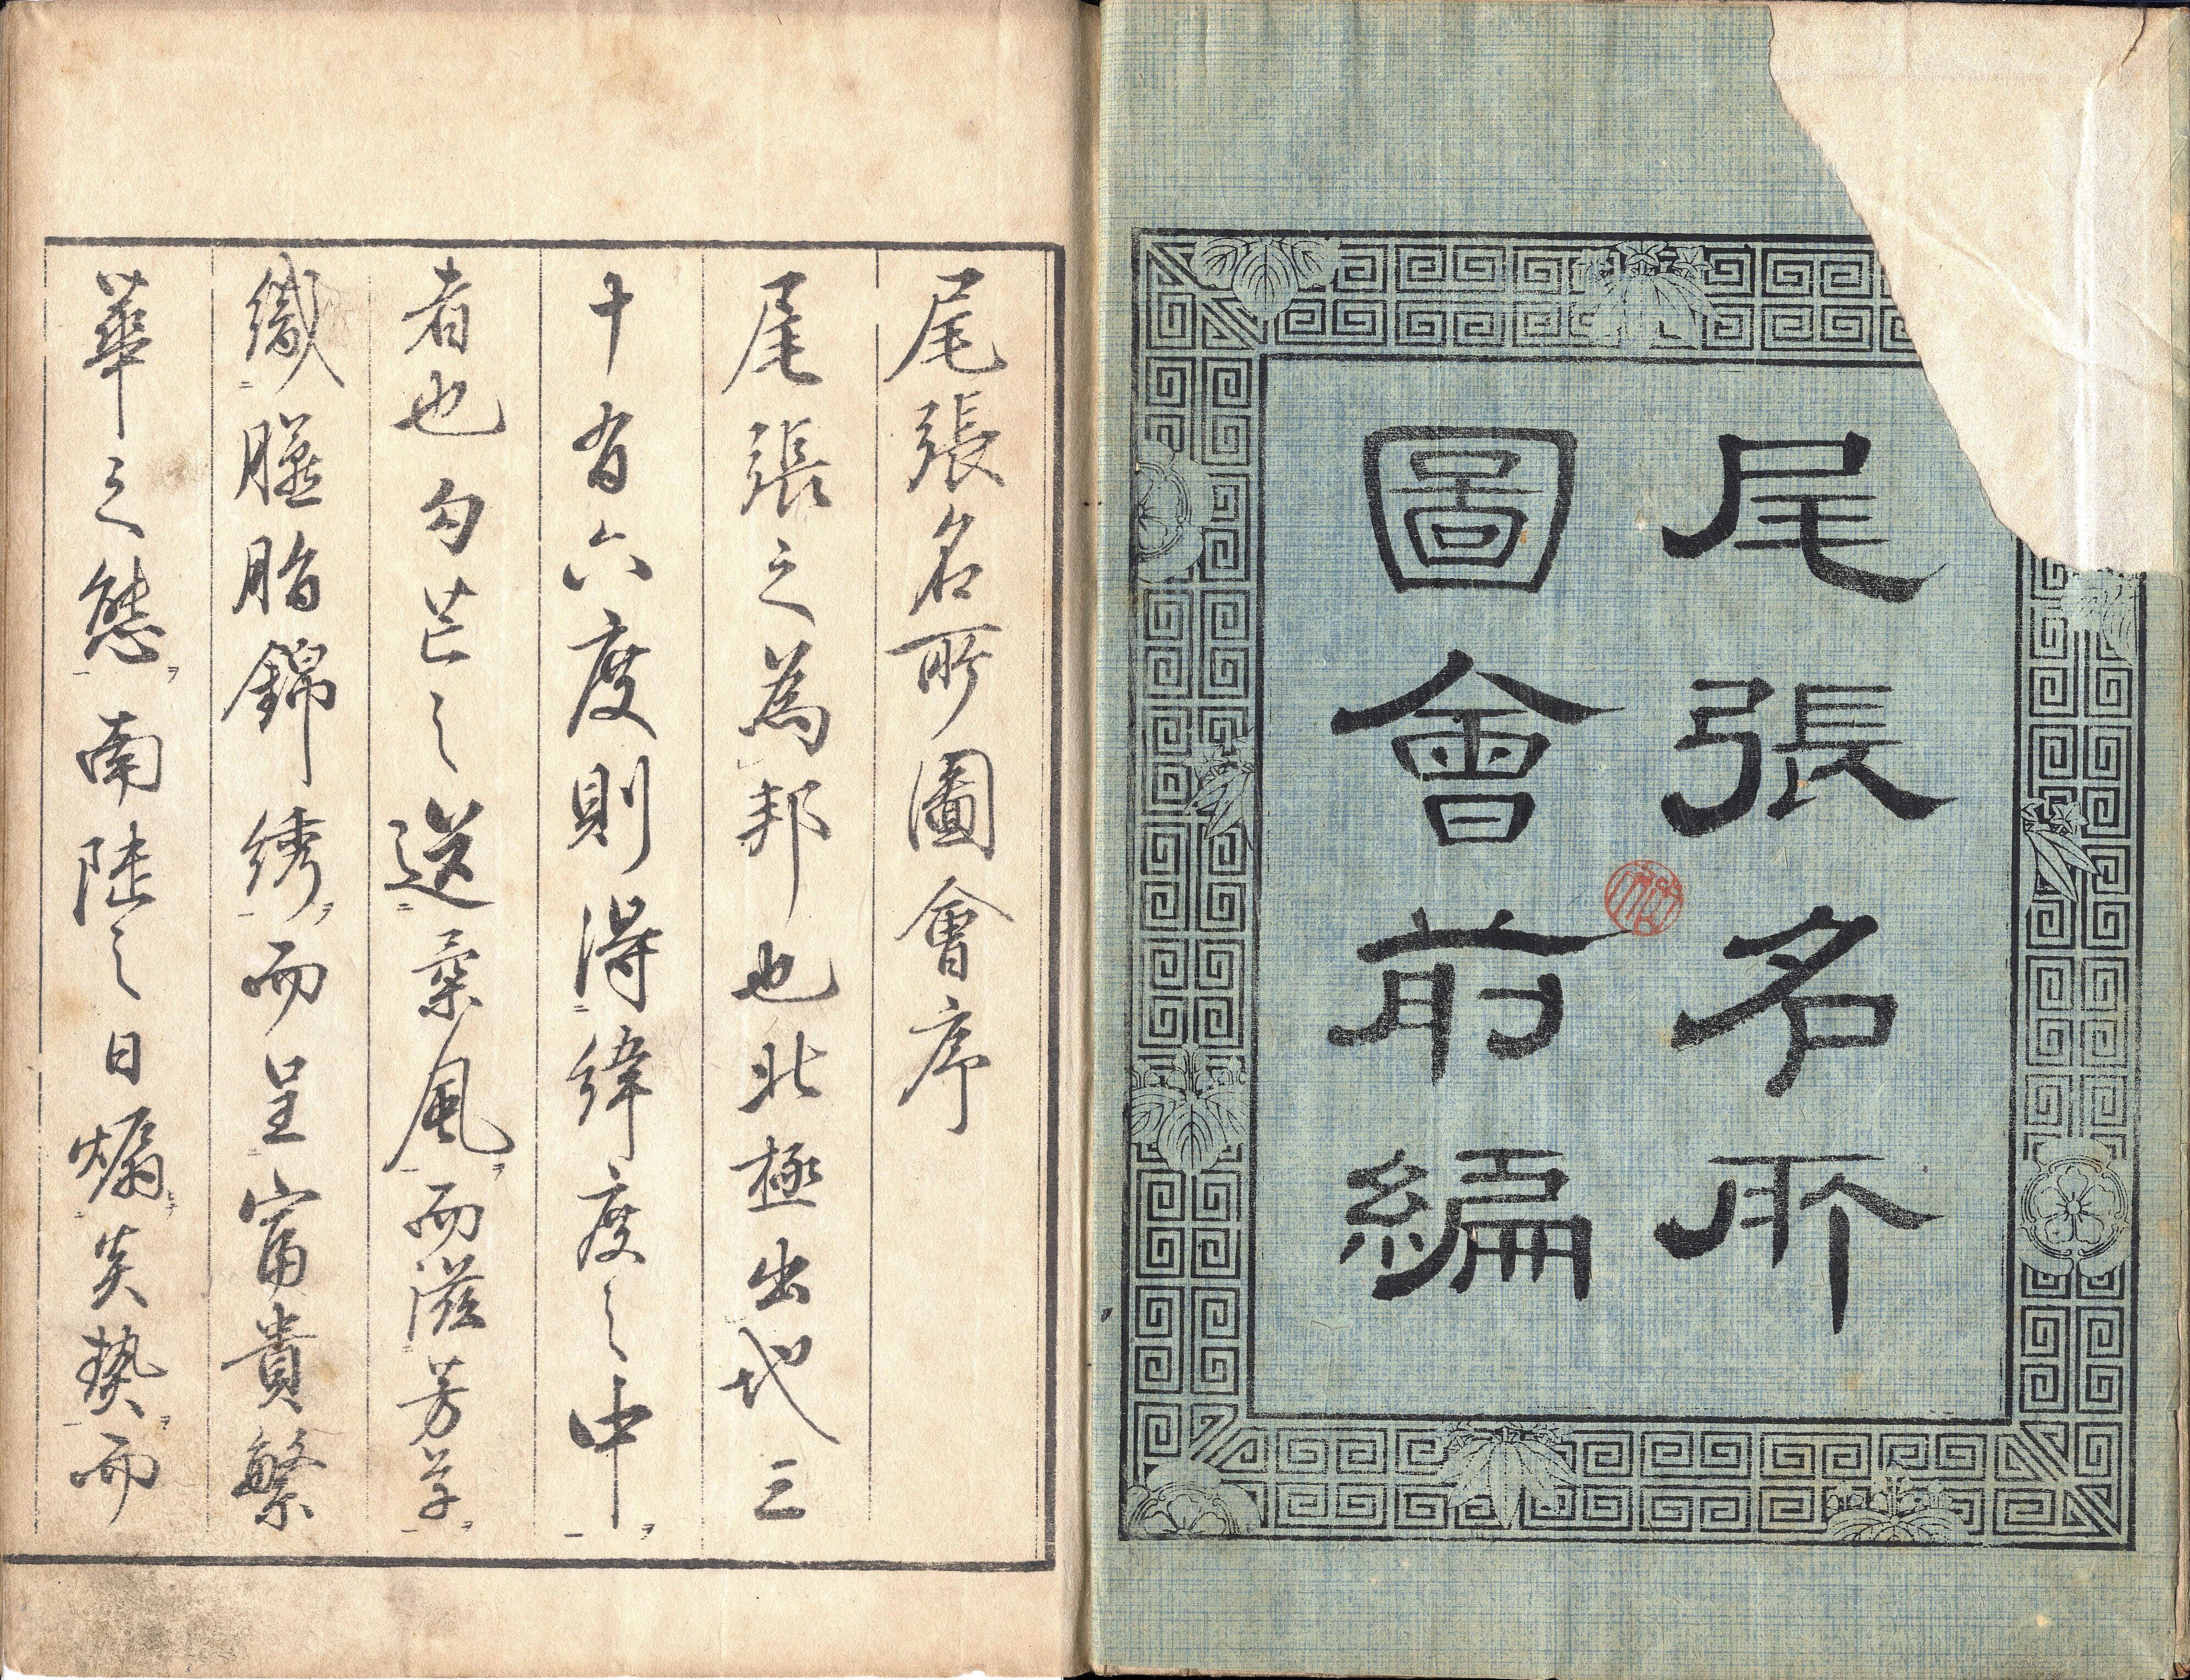 尾張名所
圖會前編
尾張名所圖會序
尾張之為邦也北極出地三
十有六度則得緯度之中
者也勾芒之送柔風而滋芳草
織臙脂錦綉而呈富貴繁
華之態南陸之日煽炎熱而